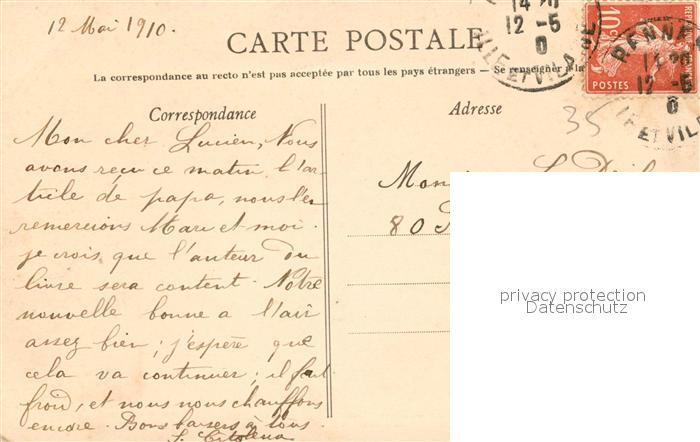 12 Mai 1910.
CARTE POSTALE
La correspondance au recto n'est pas acceptée par tous les pays étrangers — Se renseigner à la
Correspondance
Adresse
Mon cher Lucien, Nous
avons reçu ce matin l'ar
ticle de papa, nous l'en
remercions Marc et moi.
je crois que l'auteur du
livre sera content. Notre
nouvelle bonne a l'air
assez bien; j'espère que
cela va continuer; il fait
froid, et nous nous chauffons
encore. Bons baisers à tous.
35
80
RENNE
12-5
ILLE ET VILAINE
10c
POSTES
privacy protection
Datenschutz